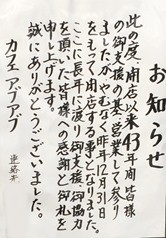 お知らせ
此の度、開店以来43年間、皆様
の御支援の基、営業して参り
ましたが、やむなく昨年12月31日
をもって閉店する事となりました。
ここに長年に渡り御支援、御協力
を頂いた皆様への感謝と御礼を
申し上げます。
誠にありがとうございました。
カフェ アブアブ
連絡先